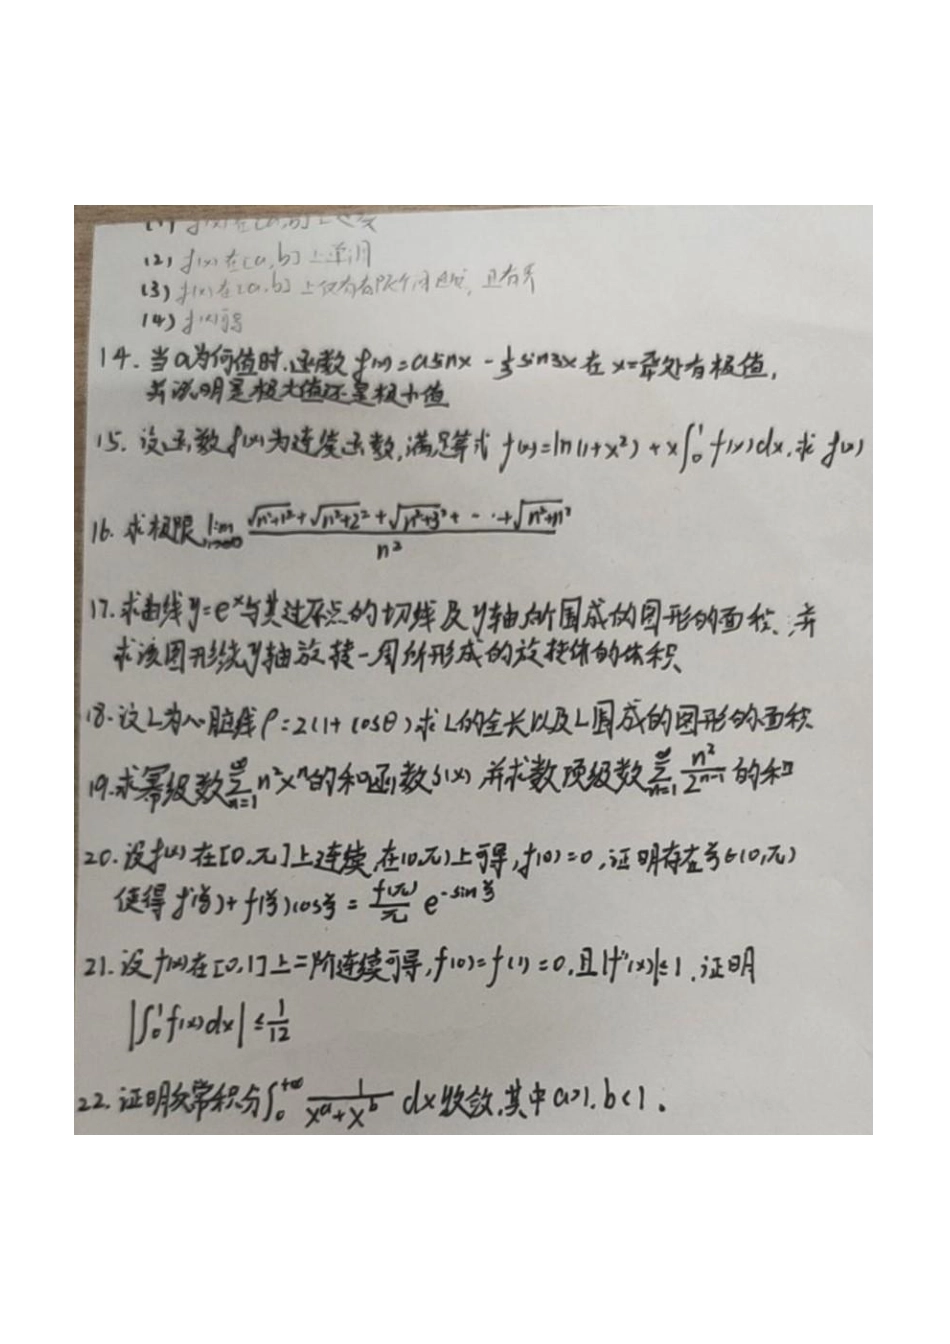 (1) f(x)在[a,b]上连续
(2) f(x)在[a,b]上单调
(3) f(x)在[a,b]上仅有有限个间断点,且有界
(4) f(x)可导
14.当a为何值时,函数 f(x)=asinx-1/3 sin3x 在 x=π/3处有极值,
并说明是极大值还是极小值
15.设函数f(x)为连续函数,满足等式 f(x)=ln(1+x²)+x∫₀¹f(x)dx,求 f(x)
16.求极限 lim n→∞ (√(n²+1²)+√(n²+2²)+√(n²+3²)+…+√(n²+n²))/n²
17.求曲线y=eˣ与其过原点的切线及y轴所围成的图形的面积,并
求该图形绕y轴旋转一周所形成的旋转体的体积
18.设L为心脏线ρ=2(1+cosθ)求L的全长以及L围成的图形的面积
19.求幂级数∑_{n=1}^{∞} n²xⁿ的和函数S(x),并求数项级数∑_{n=1}^{∞} n²/2ⁿ⁻¹的和
20.设f(x)在[0,π]上连续,在(0,π)上可导,f(0)=0,证明存在ξ∈(0,π)
使得 f'(ξ)+f(ξ)cosξ = f(π)/π e^{-sinξ}
21.设f(x)在[0,1]上二阶连续可导,f(0)=f(1)=0,且|f''(x)|≤1,证明
|∫₀¹f(x)dx|≤1/12
22.证明反常积分∫₀^{+∞} 1/(xᵃ+xᵇ) dx收敛,其中a>1,b<1.